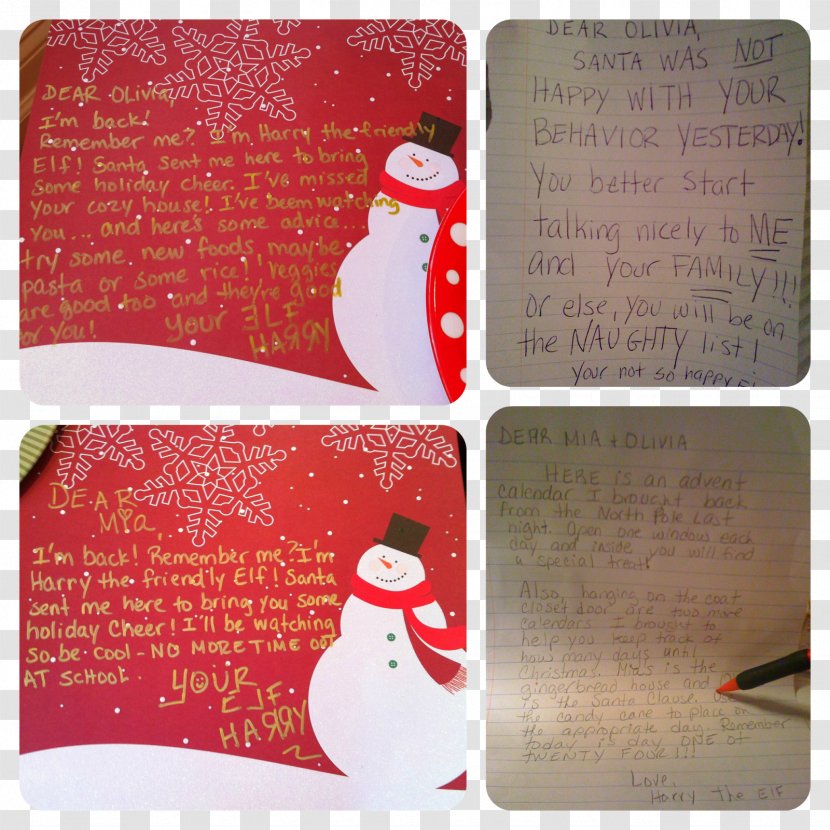 DEAR OLIVIA,
I'm back!
Remember me? I'm Harry the friendly
Elf! Santa sent me here to bring
some holiday cheer. I've missed
your cozy house! I've been watching
you... and here's some advice...
try some new foods, maybe
pasta or some rice! Veggies
are good too and they're good
for you!
your ELF
HARRY
DEAR OLIVIA,
SANTA WAS NOT
HAPPY WITH YOUR
BEHAVIOR YESTERDAY!
You better start
talking nicely to ME
and your FAMILY!!!
or else, you will be on
the NAUGHTY list!
Your not so happy
DEAR
Mia,
I'm back! Remember me? I'm
Harry the friendly Elf! Santa
sent me here to bring you some
holiday cheer! I'll be watching
so be cool - NO MORE TIME OUT
AT SCHOOL.
YOUR
ELF
HARRY
DEAR MIA + OLIVIA
HERE is an advent
calendar I brought back
from the North Pole Last
night. Open one window each
day and inside you will find
a special treat!
Also, hanging on the coat
closet door are two more
calendars I brought to
help you keep track of
how many days until
Christmas. Mia's is the
gingerbread house and
is the Santa Clause.
the candy cane to place on
the appropriate day. Remember
today is day ONE of
TWENTY FOUR!!!
Love,
Harry The Elf